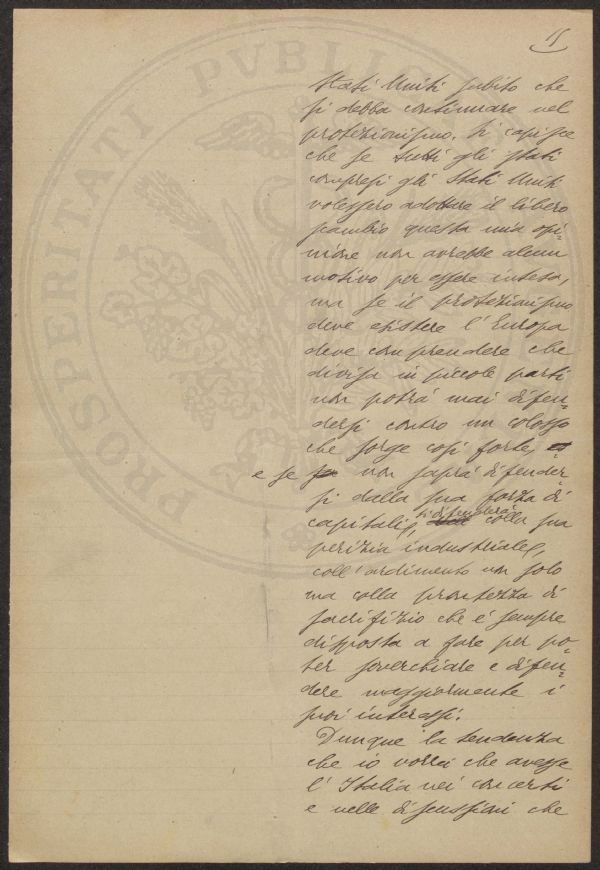 15
Stati Uniti subito che
si debba continuare nel
protezionismo. Si capisce
che se tutti gli stati
compresi gli Stati Uniti
volessero adottare il libero
scambio questa mia opi-
nione non avrebbe alcun
motivo per essere intesa,
ma se il protezionismo
deve esistere l'Europa
deve comprendere che
divisa in piccole parti
non potrà mai difen-
dersi contro un colosso
che sorge così forte,
e se non saprà difender-
si dalla sua forza di
capitali, si difenderà colla sua
perizia industriale,
coll'ardimento non solo
ma colla prontezza di
sacrifizio che è sempre
disposta a fare per po-
ter soverchiare e difen-
dere maggiormente i
suoi interessi.
Dunque la tendenza
che io vorrei che avesse
l'Italia nei concerti
e nelle discussioni che
PROSPERITATI PVBLIC